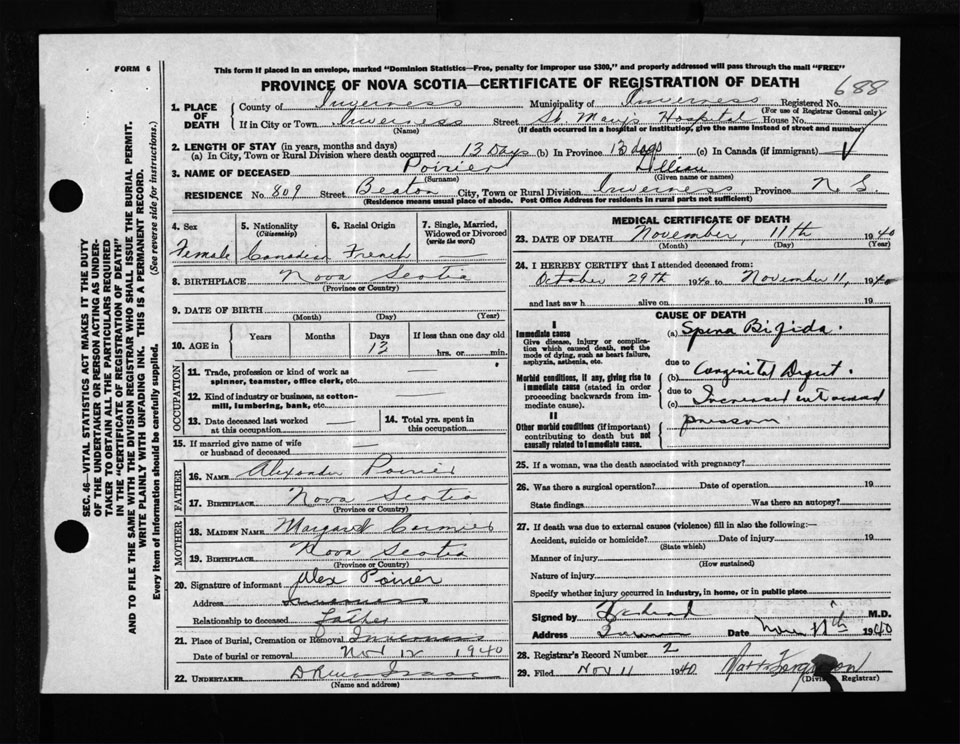 FORM 6
This form if placed in an envelope, marked "Dominion Statistics—Free, penalty for improper use $300," and properly addressed will pass through the mail "FREE"
PROVINCE OF NOVA SCOTIA—CERTIFICATE OF REGISTRATION OF DEATH
688
1. PLACE OF DEATH
County of Inverness Municipality of Inverness Registered No.
(For use of Registrar General only)
If in City or Town Inverness Street St. Mary's Hospital House No.
(Name) (If death occurred in a hospital or institution, give the name instead of street and number)
2. LENGTH OF STAY (in years, months and days)
(a) In City, Town or Rural Division where death occurred 13 Days (b) In Province 13 days (c) In Canada (if immigrant)
3. NAME OF DECEASED Poirier Lillian
(Surname) (Given name or names)
RESIDENCE No. 809 Street Beaton City, Town or Rural Division Inverness Province N S.
(Residence means usual place of abode. Post Office Address for residents in rural parts not sufficient)
SEC. 46—VITAL STATISTICS ACT MAKES IT THE DUTY
OF THE UNDERTAKER OR PERSON ACTING AS UNDER-
TAKER TO OBTAIN ALL THE PARTICULARS REQUIRED
IN THE "CERTIFICATE OF REGISTRATION OF DEATH"
AND TO FILE THE SAME WITH THE DIVISION REGISTRAR WHO SHALL ISSUE THE BURIAL PERMIT.
WRITE PLAINLY WITH UNFADING INK. THIS IS A PERMANENT RECORD.
Every item of Information should be carefully supplied. (See reverse side for instructions.)
4. Sex
Female
5. Nationality
(Citizenship)
Canadian
6. Racial Origin
French
7. Single, Married,
Widowed or Divorced
(write the word)
—
8. BIRTHPLACE Nova Scotia
(Province or Country)
9. DATE OF BIRTH
(Month) (Day) (Year)
10. AGE in
Years Months Days If less than one day old
13 hrs. or min.
OCCUPATION
11. Trade, profession or kind of work as
spinner, teamster, office clerk, etc. —
12. Kind of industry or business, as cotton-
mill, lumbering, bank, etc. —
13. Date deceased last worked
at this occupation —
14. Total yrs. spent in
this occupation —
15. If married give name of wife
or husband of deceased —
FATHER
16. NAME Alexander Poirier
17. BIRTHPLACE Nova Scotia
(Province or Country)
MOTHER
18. MAIDEN NAME Margaret Cormier
19. BIRTHPLACE Nova Scotia
(Province or Country)
20. Signature of informant Alex Poirier
Address Inverness
Relationship to deceased father
21. Place of Burial, Cremation or Removal Inverness
Date of burial or removal Nov 12 1940
22. UNDERTAKER Isaac
(Name and address)
MEDICAL CERTIFICATE OF DEATH
23. DATE OF DEATH November, 11th 1940
(Month) (Day) (Year)
24. I HEREBY CERTIFY that I attended deceased from:
October 29th 1940 to November 11, 1940
and last saw h alive on 19
CAUSE OF DEATH
I
Immediate cause
Give disease, injury or complica-
tion which caused death, not the
mode of dying, such as heart failure,
asphyxia, asthenia, etc.
(a) Spina Bifida.
due to
Morbid conditions, if any, giving rise to
immediate cause (stated in order
proceeding backwards from im-
mediate cause).
(b) Congenital
due to
(c) Increased
II
Other morbid conditions (if important)
contributing to death but not
causally related to immediate cause.
25. If a woman, was the death associated with pregnancy?
26. Was there a surgical operation? Date of operation 19
State findings Was there an autopsy?
27. If death was due to external causes (violence) fill in also the following:—
Accident, suicide or homicide? Date of injury 19
(State which)
Manner of injury
(How sustained)
Nature of injury
Specify whether injury occurred in industry, in home, or in public place
Signed by M.D.
Address Date Nov 11th 1940
28. Registrar's Record Number 2
29. Filed Nov 11 1940 Ferguson
(Division Registrar)